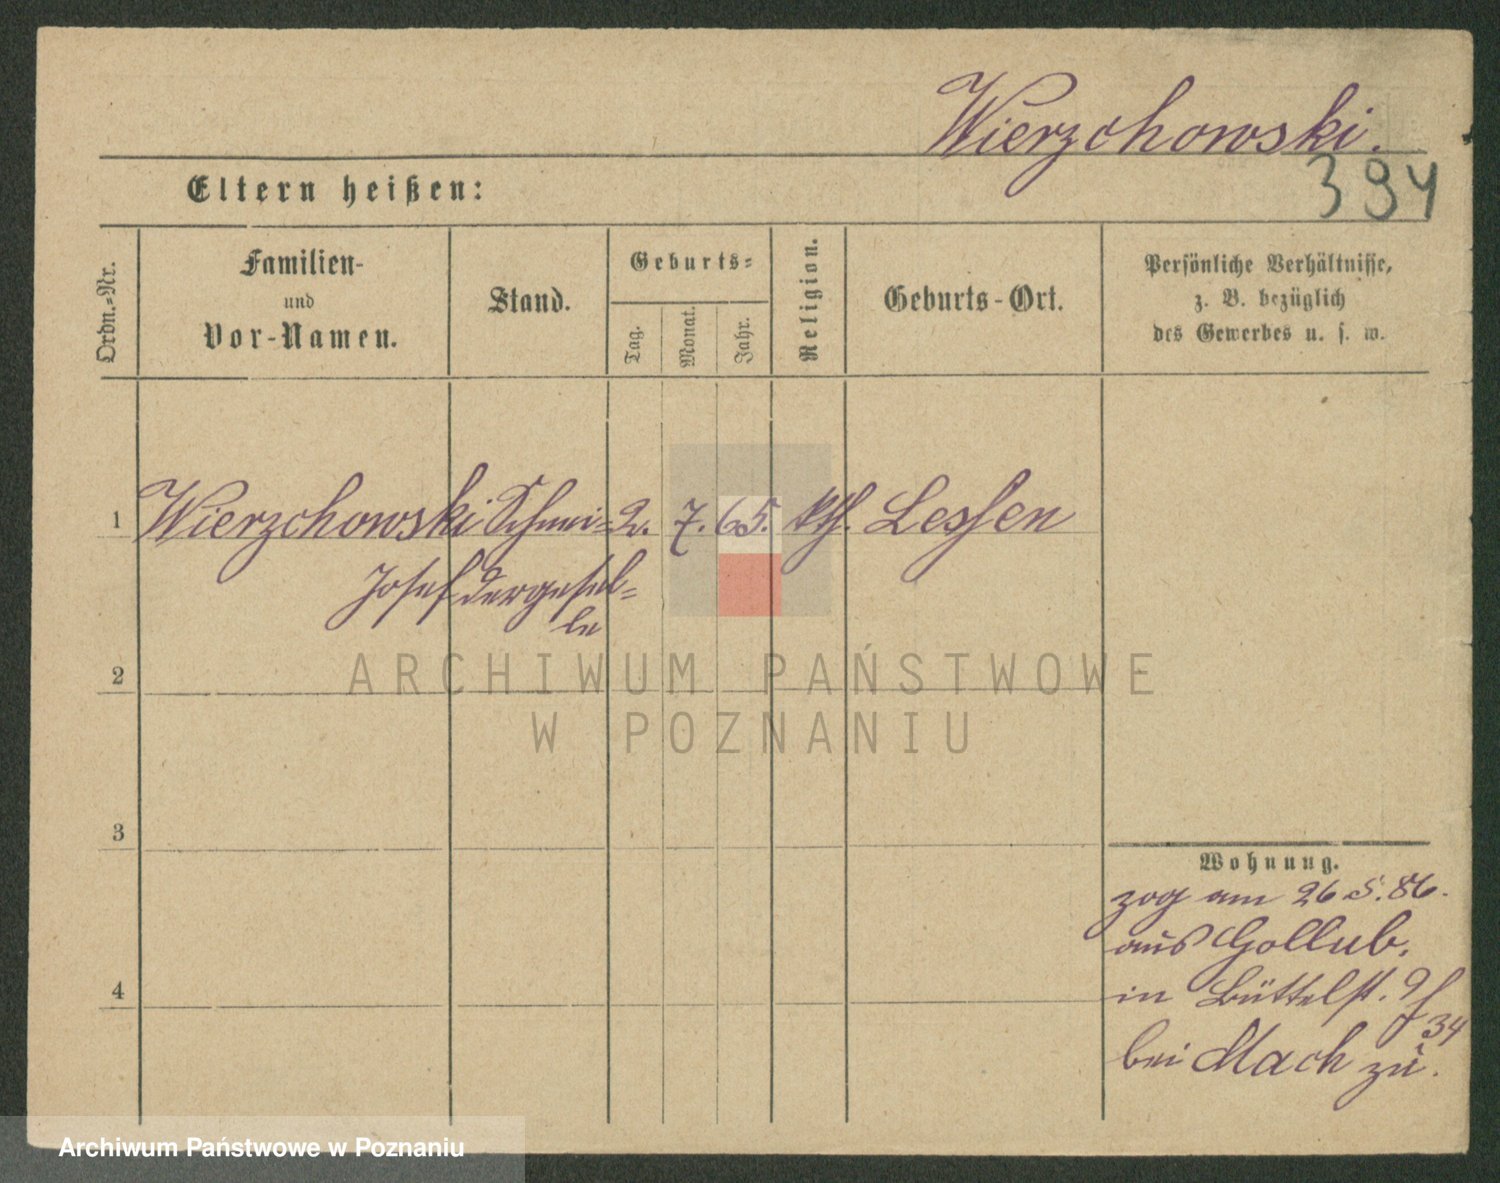 Wierzchowski.
394
Eltern heißen:
Ordn.-Nr.
Familien-
und
Vor-Namen.
Stand.
Geburts-
Tag.
Monat.
Jahr.
Religion.
Geburts-Ort.
Persönliche Verhältnisse,
z. B. bezüglich
des Gewerbes u. s. w.
1 Wierzchowski Schnei- 2. 7. 65. kth. Lessen
Josef dergesel-
le
2
3
4
Wohnung.
zog am 26 5. 86.
aus Gollub,
in Büttelst. 9/
34
bei Mach zu.
ARCHIWUM PAŃSTWOWE
W POZNANIU
Archiwum Państwowe w Poznaniu